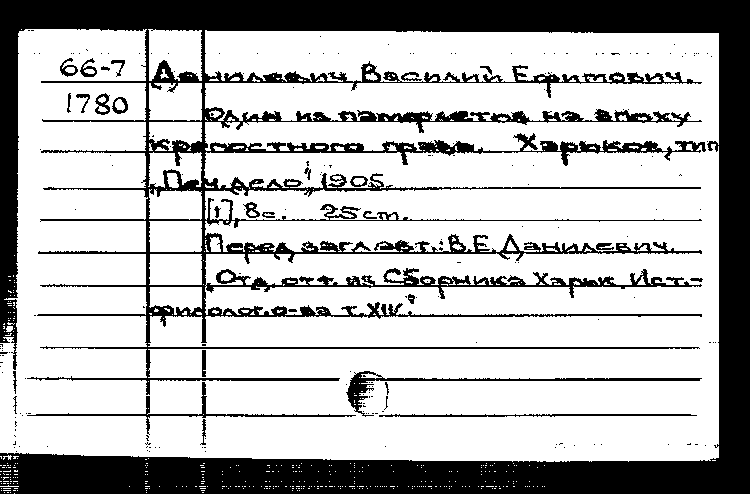 66-7 Данилевич, Василий Ефимович.
1780 Один из памфлетов на эпоху
крепостного права. Харьков, тип
„Печ. дело", 1905.
[1], 8с. 25 cm.
Перед заглавт.: В.Е. Данилевич.
„Отд. отт. из Сборника Харьк. Ист.-
филолог. о-ва т. XIV."